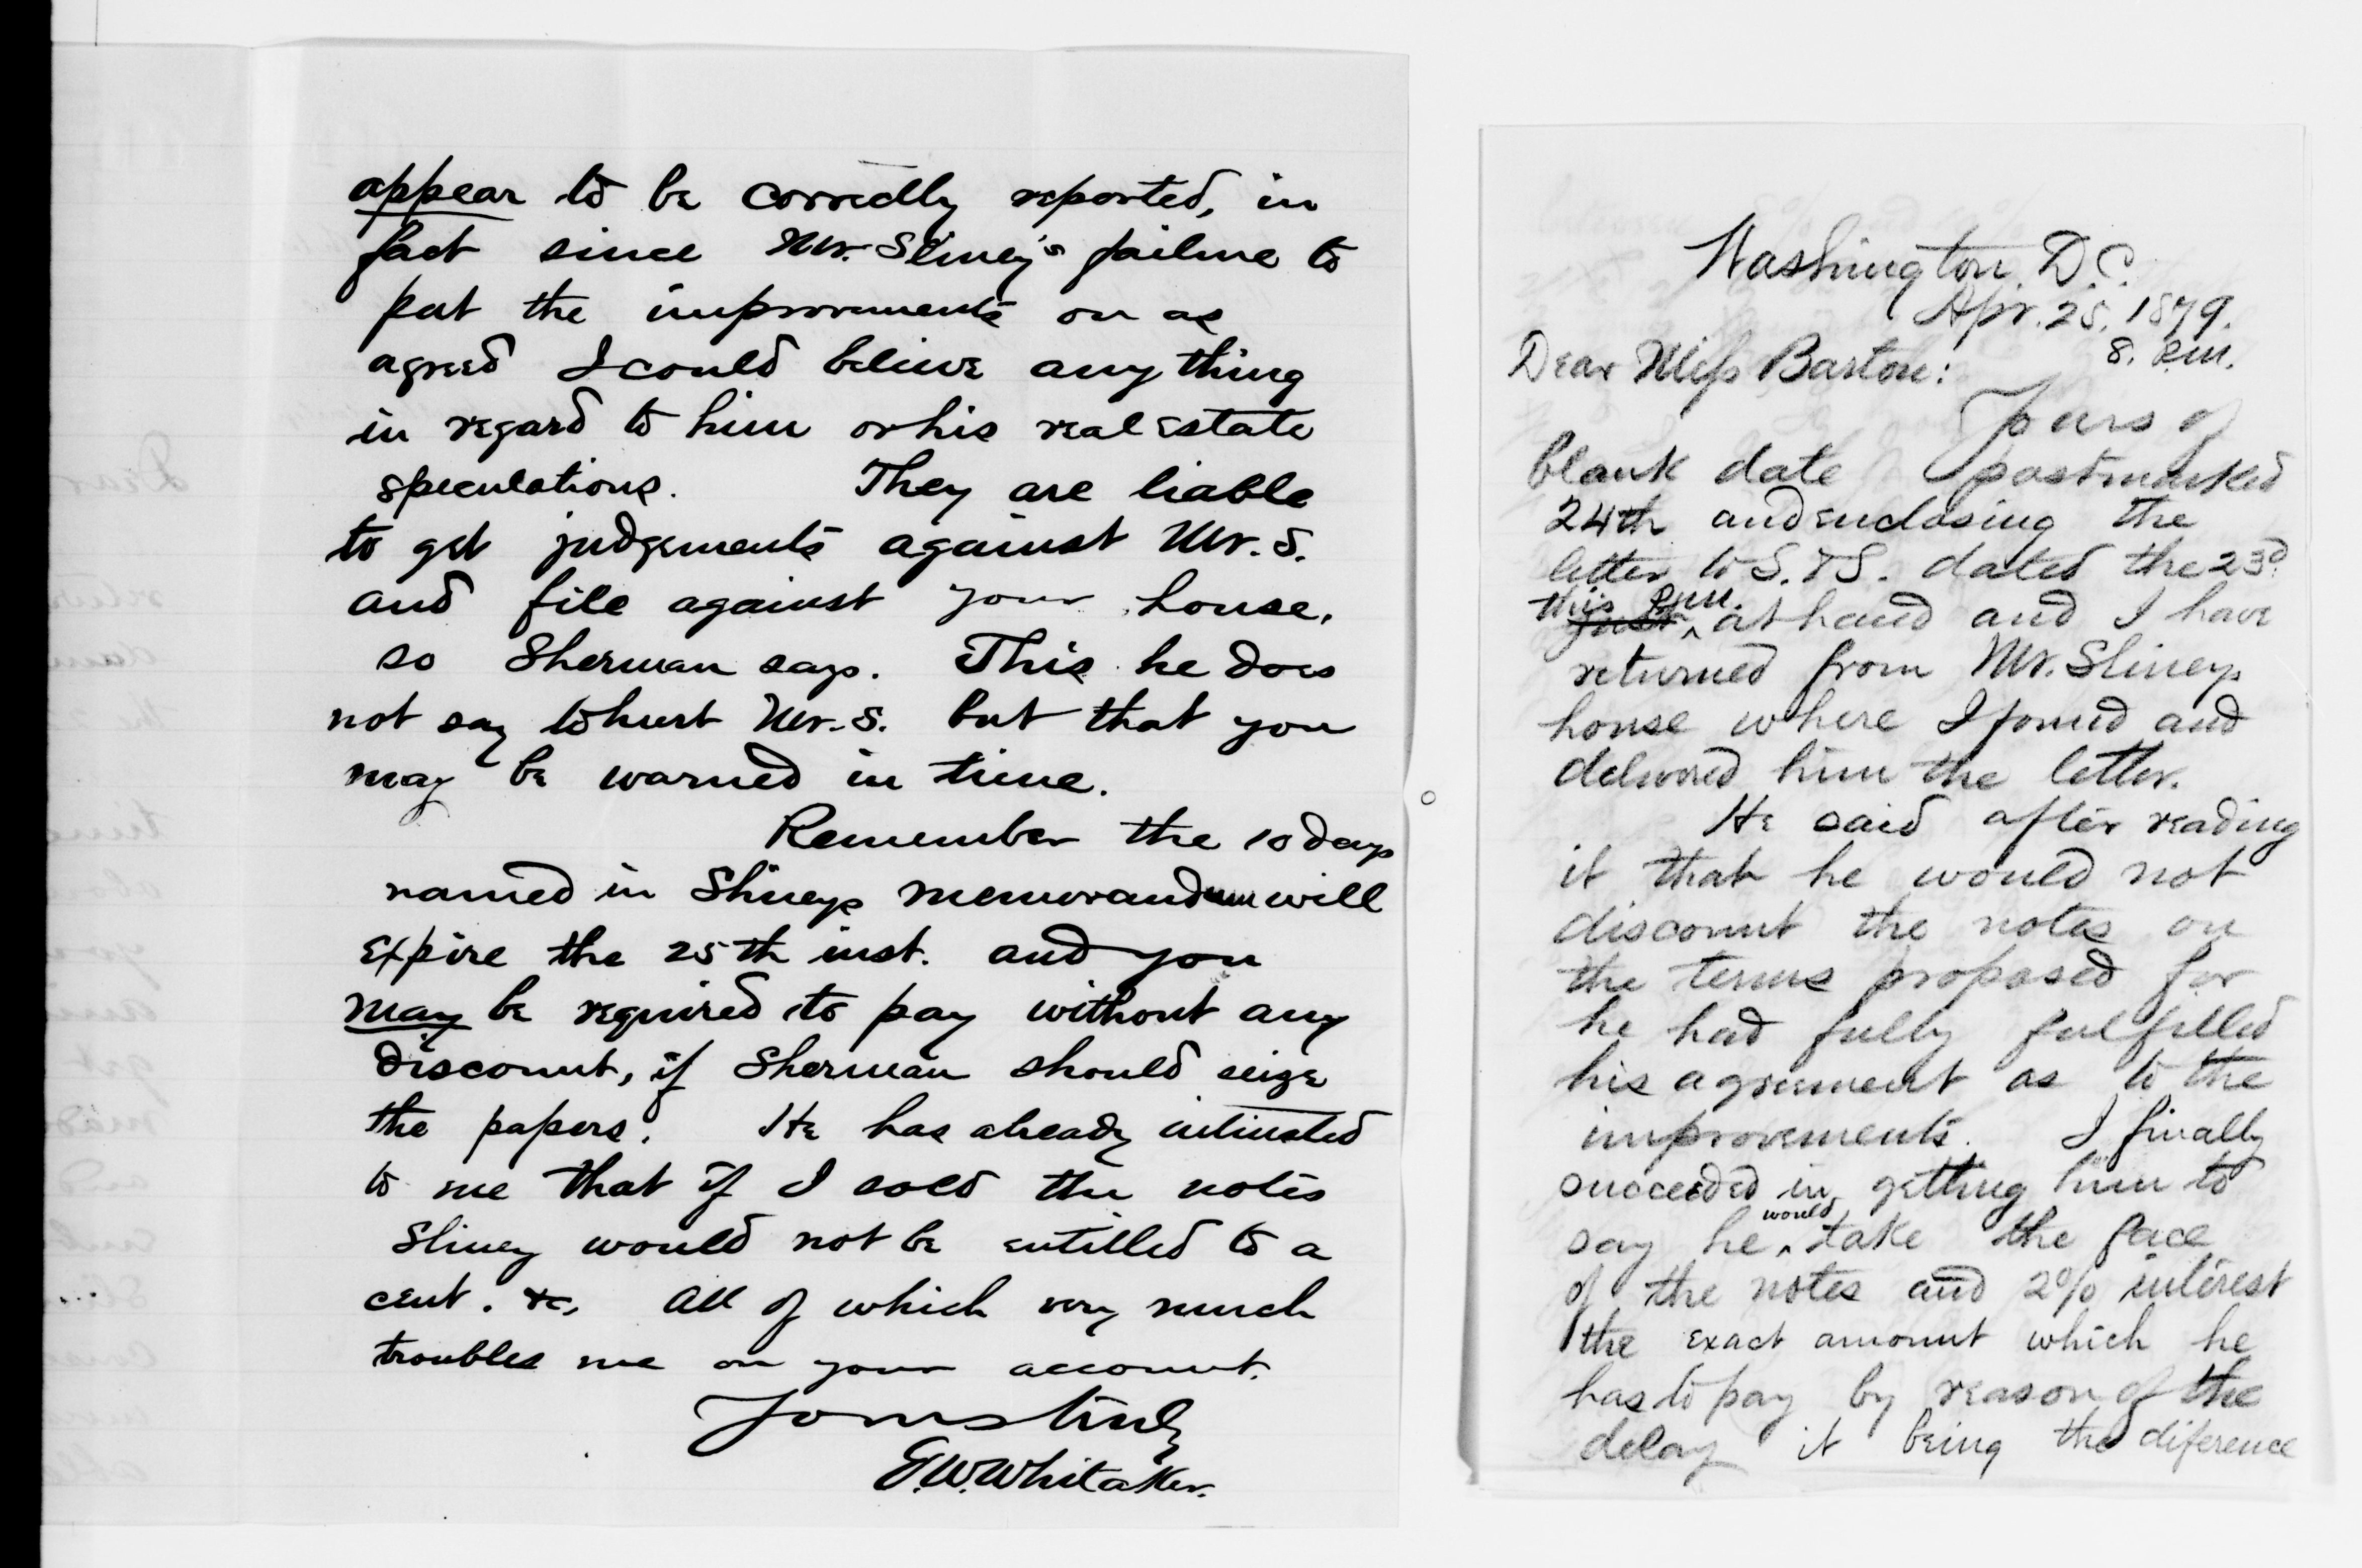 appear to be correctly reported, in
fact since Mr. Sliney's failure to
put the improvements on as
agreed I could believe any thing
in regard to him or his real estate
speculations. They are liable
to get judgements against Mr. S.
and file against your house,
so Sherman says. This he does
not say to hurt Mr. S. but that you
may be warned in time.
Remember the 10 days
named in Slineys memorandum will
expire the 25th inst. and you
may be required to pay without any
discount, if Sherman should seize
the papers. He has already intimated
to me that if I sold the notes
Sliney would not be entitled to a
cent. &c, All of which very much
troubles me on your account.
Yours truly
E.W. Whitaker.
Washington, D.C.
Apr. 25, 1879.
8. P.M.
Dear Miss Barton:
Yours of
blank date postmarked
24th and enclosing the
letter to S. & S. dated the 23d.
this P.M.
just at hand and I have
returned from Mr. Slineys
house where I found and
delivered him the letter.
He said after reading
it that he would not
discount the notes on
the terms proposed for
he had fully fulfilled
his agreement as to the
improvements. I finally
succeeded in getting him to
say he would take the face
of the notes and 2% interest
the exact amount which he
has to pay by reason of the
delay it being the diference